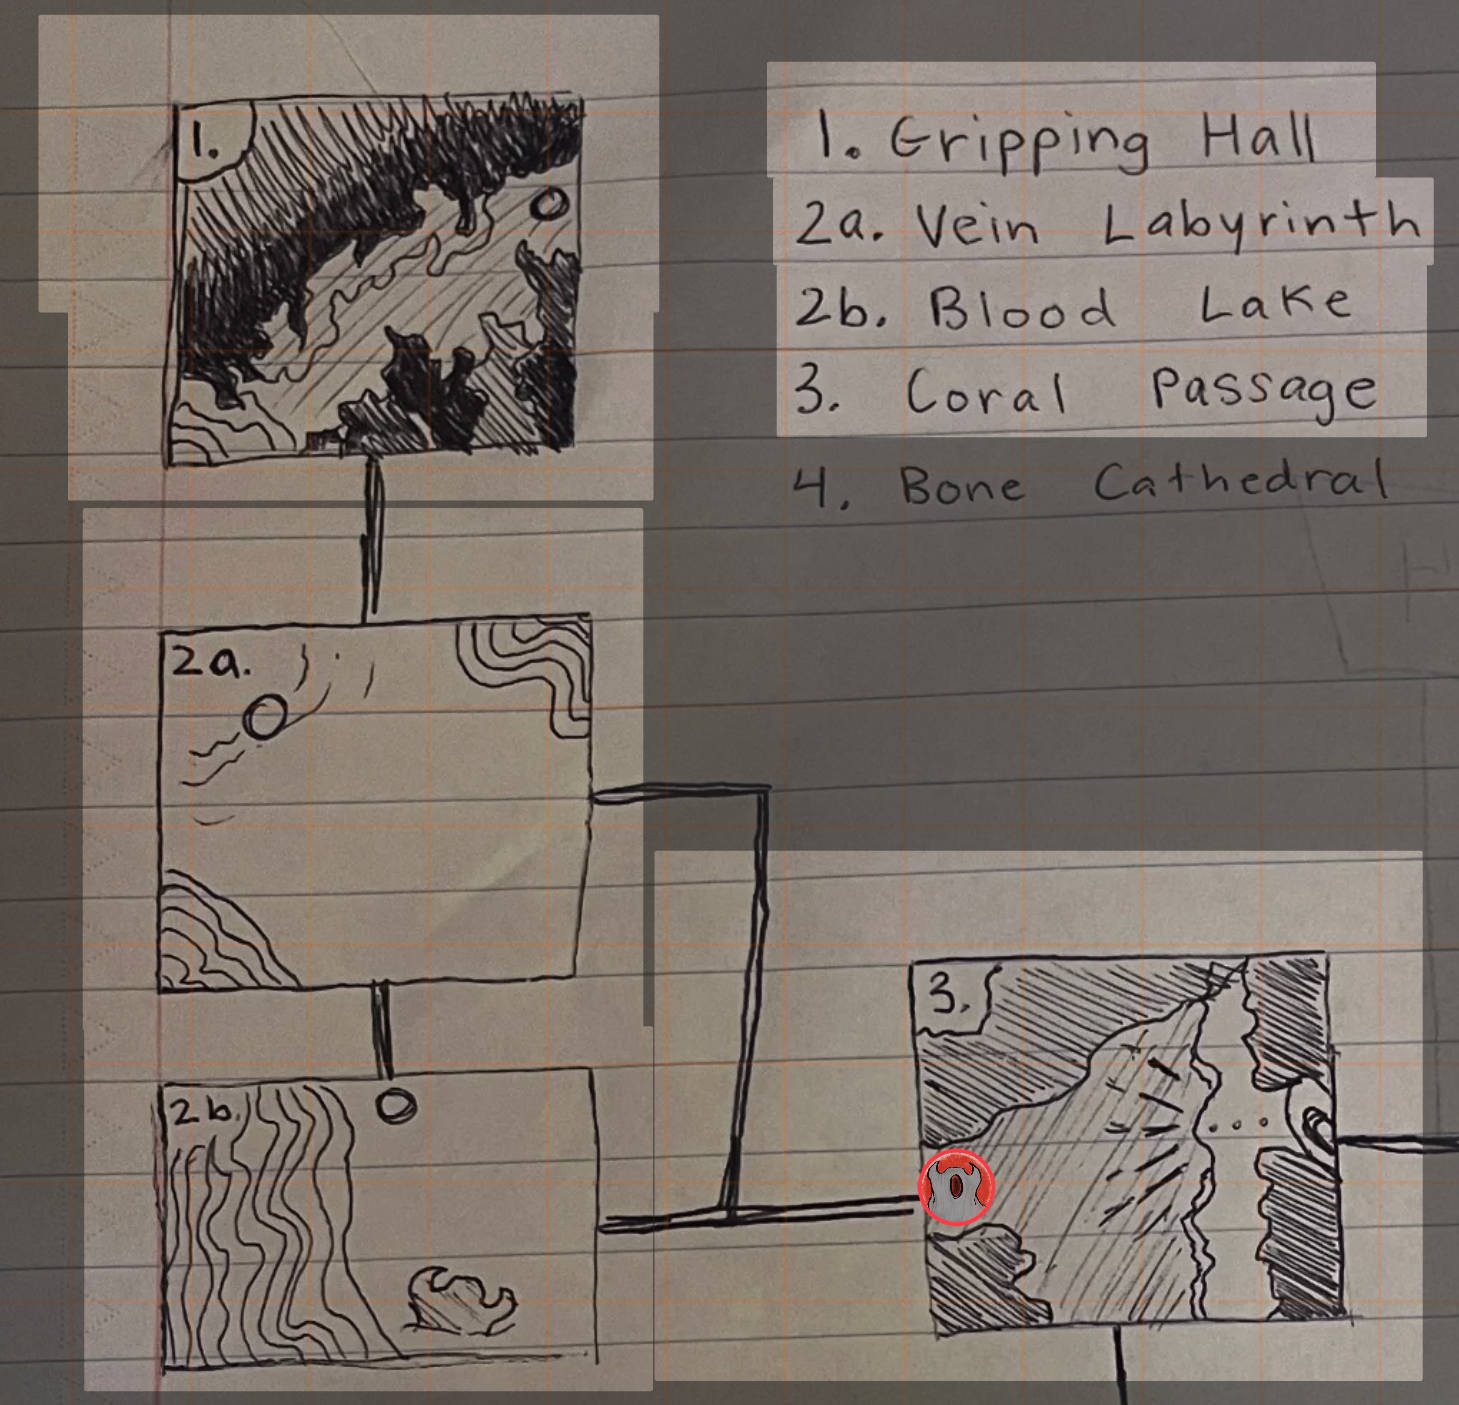 1.
1. Gripping Hall
2a. Vein Labyrinth
2b. Blood Lake
3. Coral Passage
4. Bone Cathedral
2a.
2b.
3.